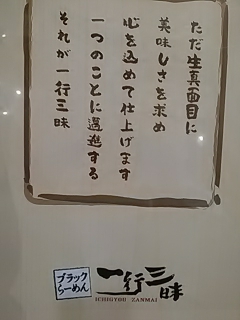 ただ生真面目に
美味しさを求め
心を込めて仕上げます
一つのことに邁進する
それが一行三昧
ブラック
らーめん
一行三昧
ICHIGYOU ZANMAI